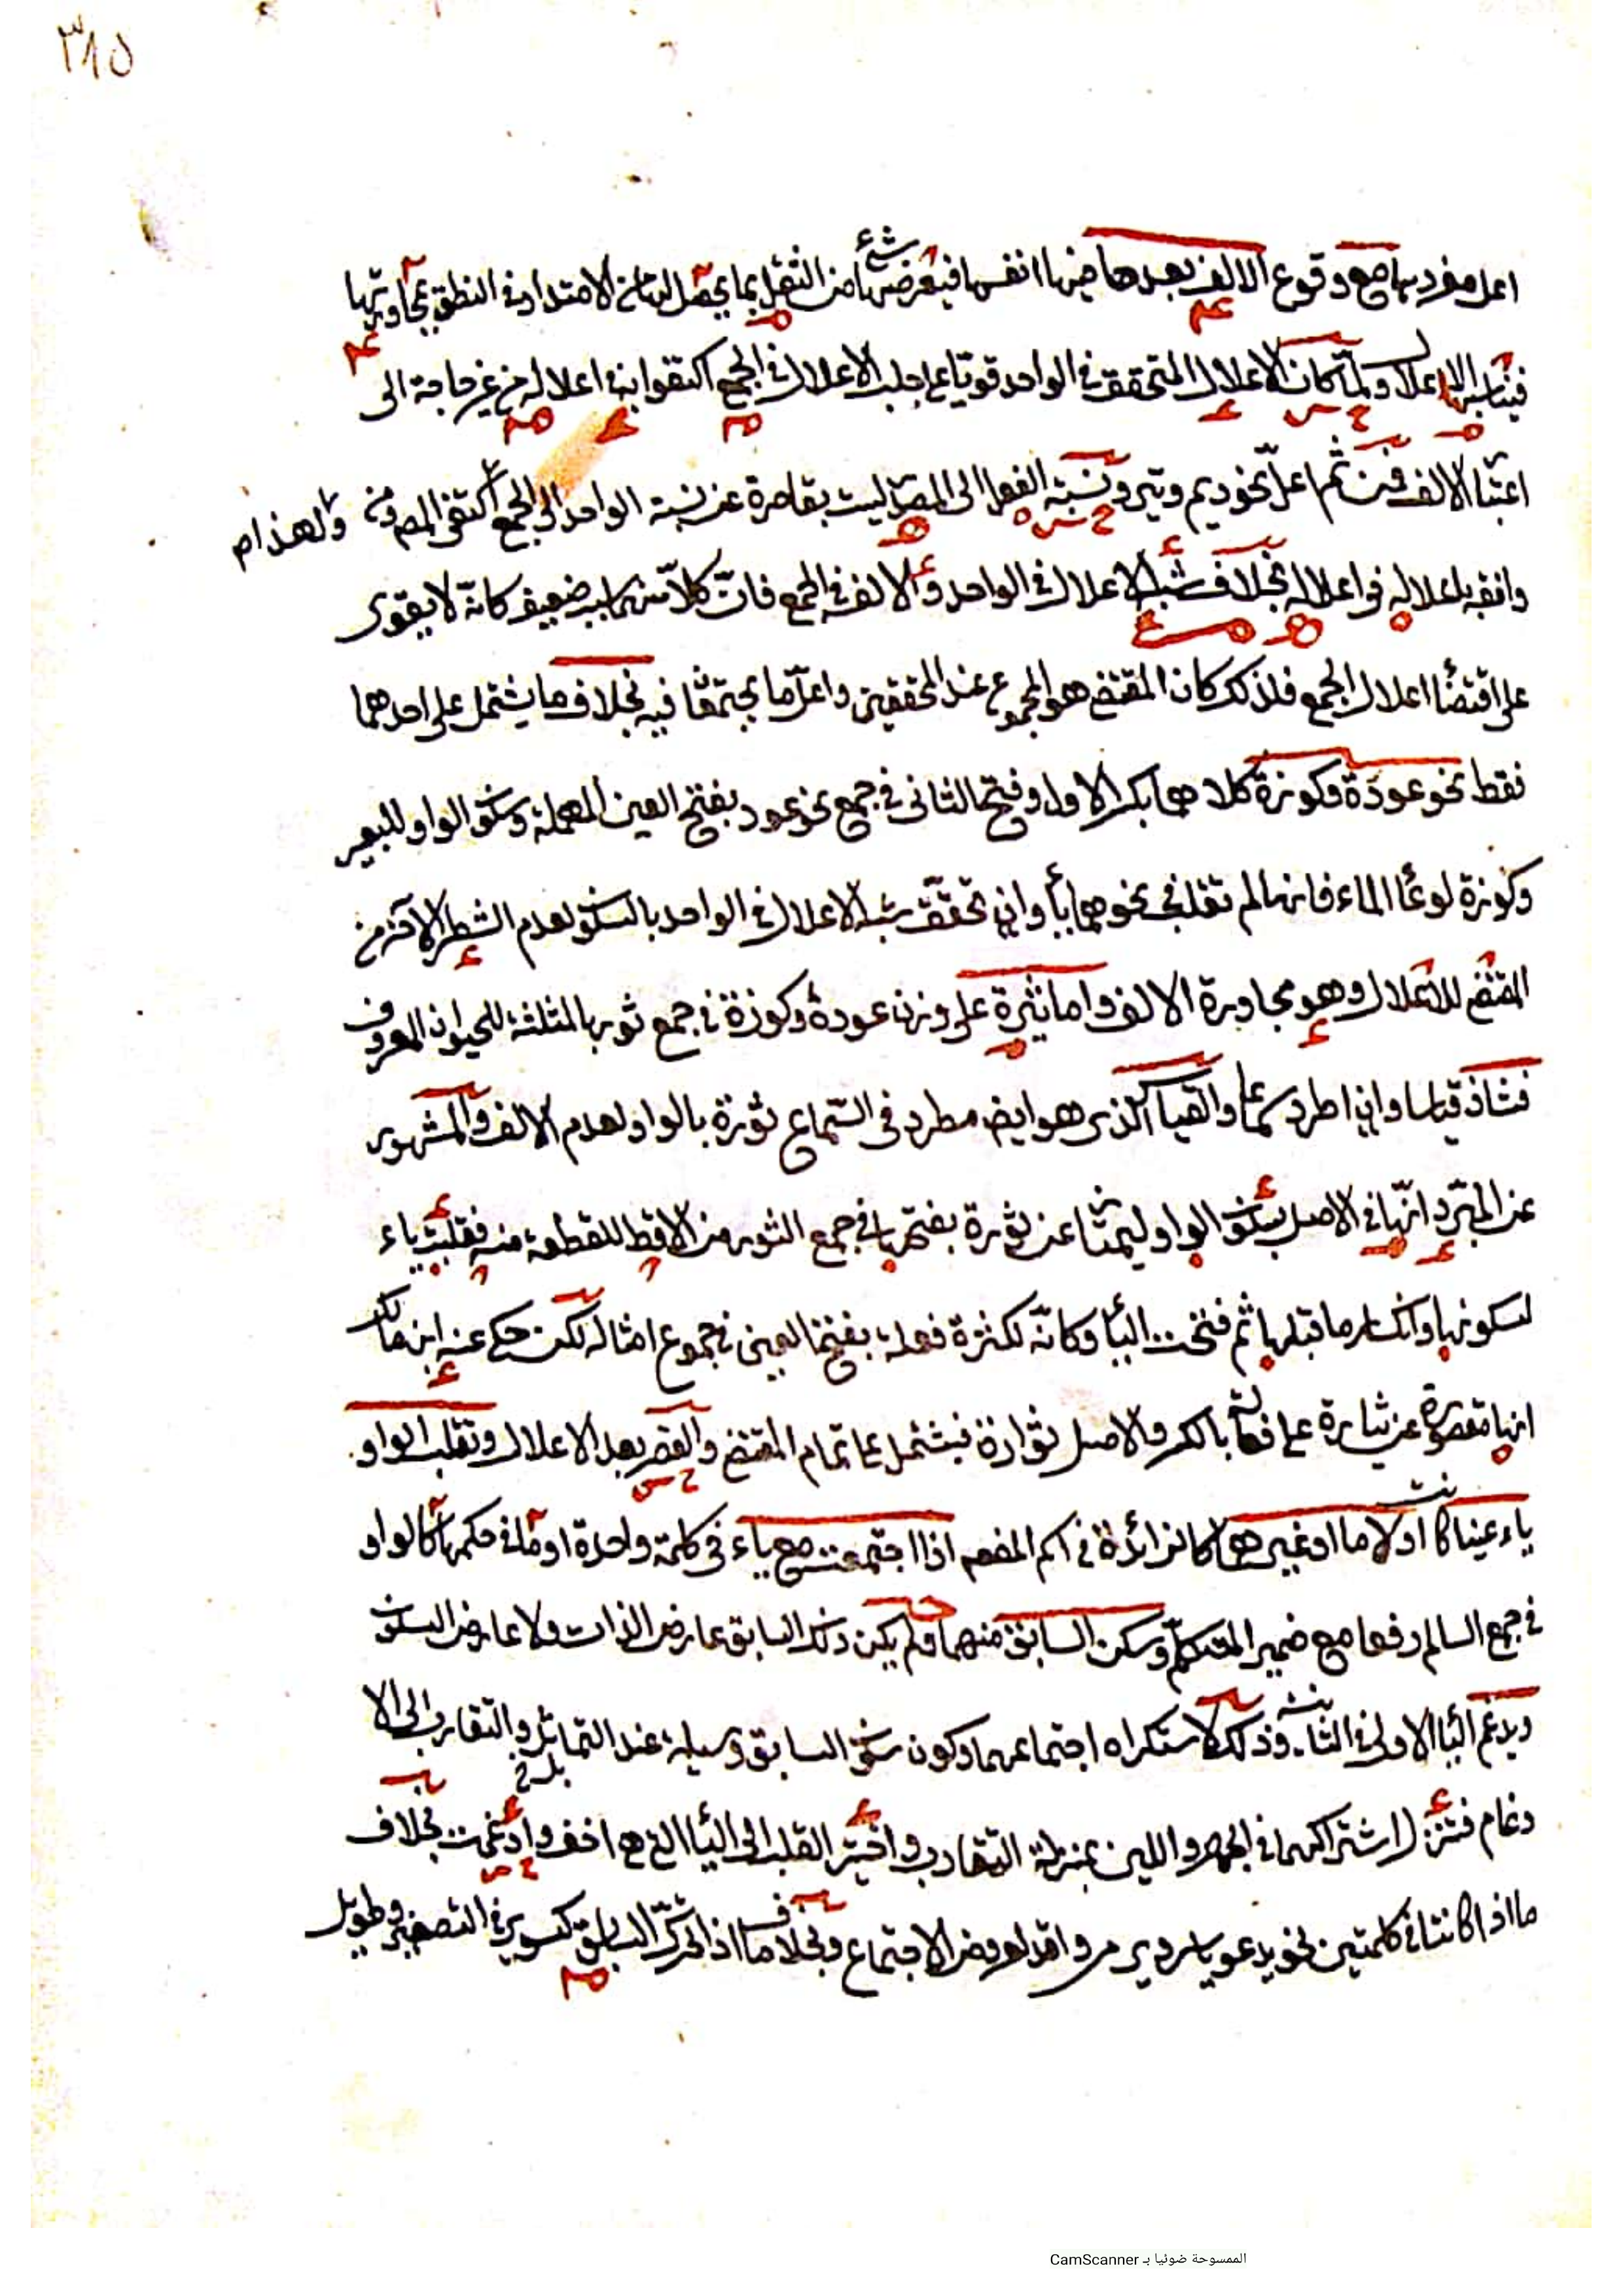 ٣١٥
اعل مفردها مع وقوع الالف بعدها فيها انفسها فيعرضها شئ من الثقل بما يحصل لها من الامتداد في النطق بمجاورتها
فيناسبها الاعلال ولما كان الاعلال المتحقق في الواحد قويا على جلب الاعلال في الجمع اكتفوا به في اعلاله من غير حاجة الى
الالف فمن ثم اعل نحو ديم وتير ونسبة الفعل الى المصدر ليست بقاصرة عن نسبة الواحد الى الجمع اكتفى المص ولهذا
باعلاله في اعلاله بخلاف شبه الاعلال في الواحد والالف في الجمع فان كلا منهما سبب ضعيف كانه لا يقوى
على اقتضاء اعلال الجمع فلذلك كان المقتضى هو المجموع عند المحققين واعل ما يجتمعا فيه بخلاف ما يشتمل على احدهما
فقط نحو عودة وكوزة كلاهما بكسر الاول وفتح الثاني في جمع نحو عود بفتح العين المهملة وسكون الواو للبعير
وكوزة لوعاء الماء فانها لم تقلب في نحوهما ياء وان تحقق شبه الاعلال في الواحد بالسكون لعدم الشطر الاخر من
المقتضى للاعلال وهو مجاورة الالف واما ثيرة على وزن عودة وكوزة في جمع ثور بالمثلثة للحيوان المعروف
فشاذ قياسا وان اطرد سماعا والقياس الذي هو ايضا مطرد في السماع ثورة بالواو لعدم الالف والمشهور
عن المبرد انها في الاصل بسكون الواو ليمتاز عن ثورة بفتحها في جمع الثور من الاقط للقطعة منه فقلبت ياء
لسكونها وانكسار ما قبلها ثم فتحت الياء وكانه لكثرة فعلة بفتح العين في جموع امثاله لكن حكى عنه ابن مالك
انها مقصورة عن ثيارة على فعالة بالكسر والاصل ثوارة فيشتمل على تمام المقتضى والقصر بعد الاعلال وتقلب الواو
ياء عينا كانت او لاما او غيرهما كالزائدة في اسم المفعول اذا اجتمعت مع ياء في كلمة واحدة او ما في حكمها كالواو
في جمع السالم رفعا مع ضمير المتكلم وسكن السابق منهما ولم يكن ذلك السابق عارض الذات ولا عارض السكون
ويدغم الياء الاولى في الثانية وذلك لاستكراه اجتماعهما وكون سكون السابق وسيلة عند التماثل والتقارب الى الا
دغام فنزل اشتراكهما في الجهر واللين بمنزلة التقارب واختير القلب الى الياء التي هي اخف وادغمت بخلاف
ما اذا كانتا في كلمتين نحو يدعو ياسر ويرمي واقد لعروض الاجتماع وبخلاف ما اذا تحرك السابق كسوير في التصغير وطويل
الممسوحة ضوئيا بـ CamScanner